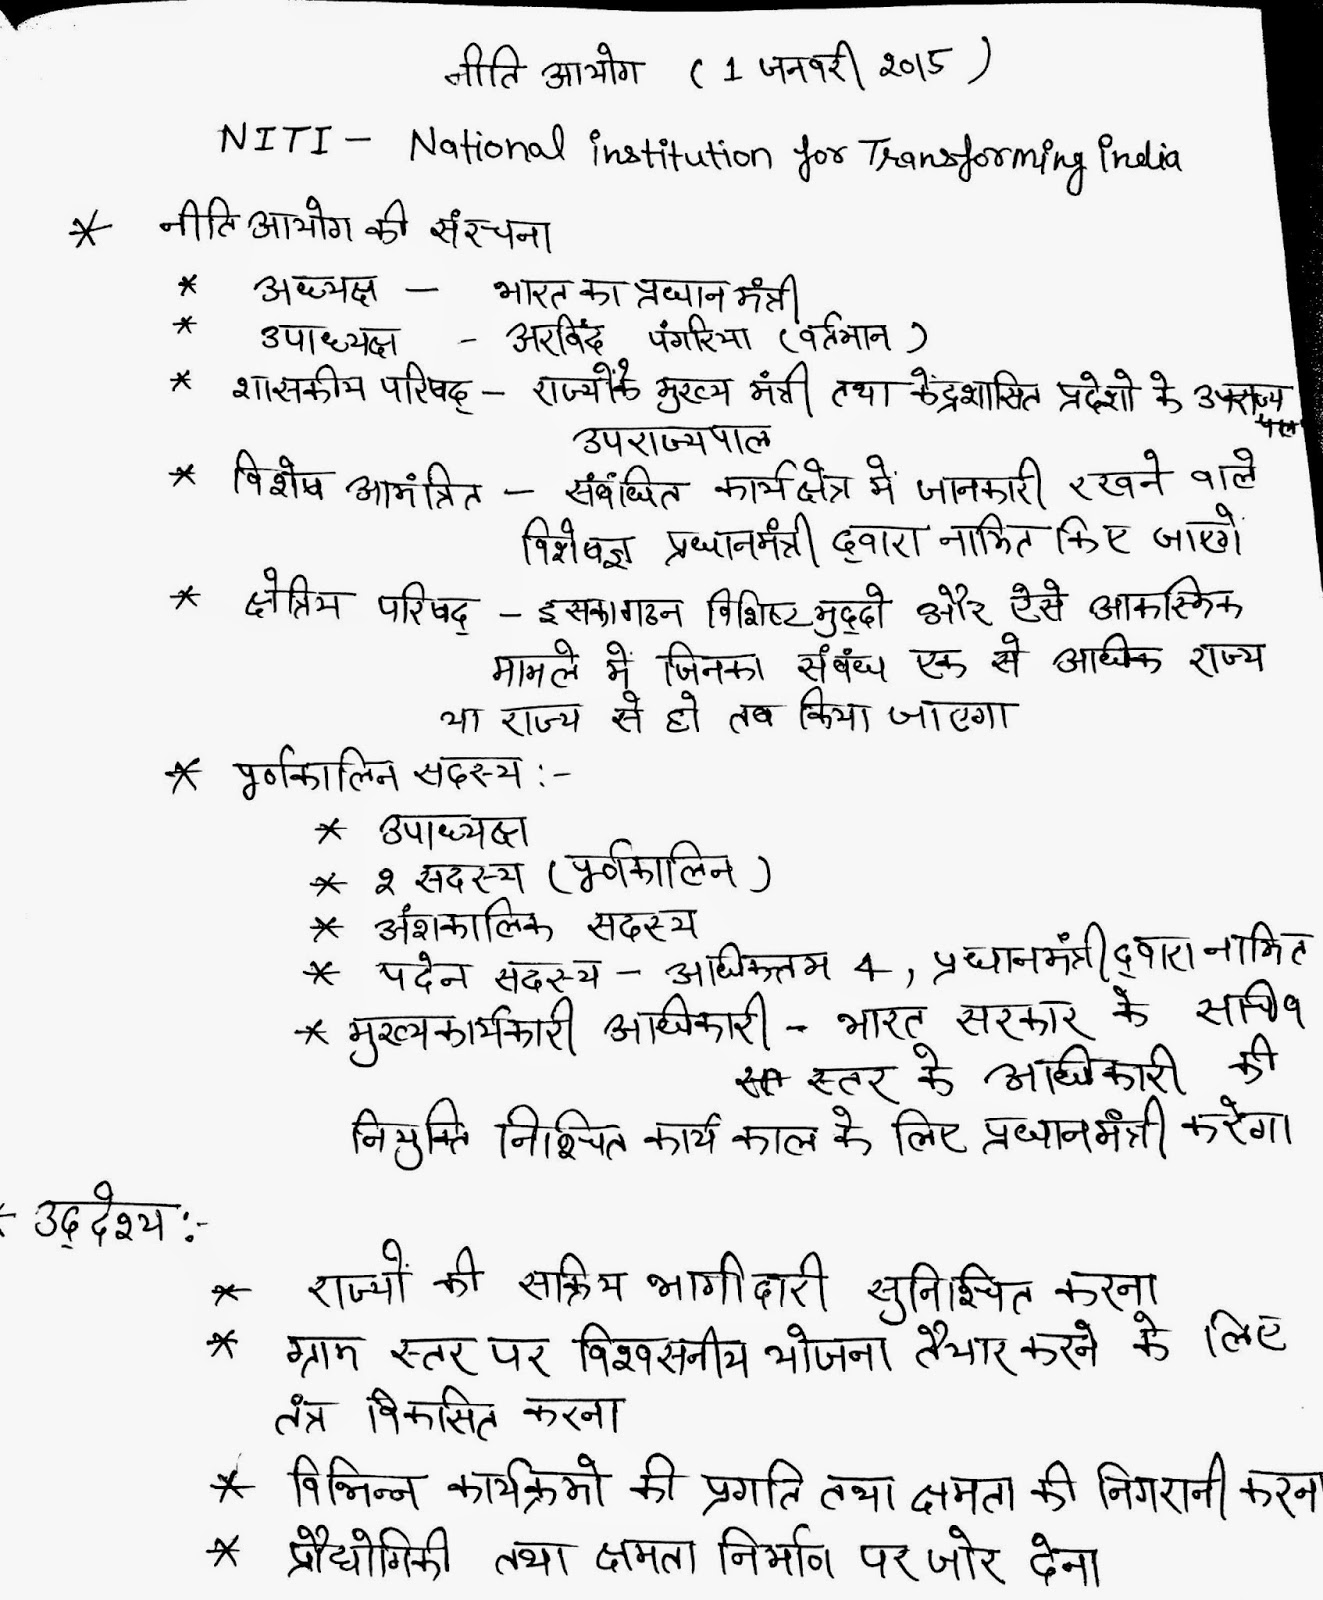 नीति आयोग ( 1 जनवरी 2015 )
NITI - National institution for Transforming india
* नीति आयोग की संरचना
* अध्यक्ष - भारत का प्रधान मंत्री
* उपाध्यक्ष - अरविंद पंगरिया (वर्तमान)
* शासकीय परिषद् - राज्यों के मुख्य मंत्री तथा केंद्रशासित प्रदेशो के उपराज्यपाल
उपराज्यपाल
* विशेष आमंत्रित - संबंधित कार्यक्षेत्र में जानकारी रखने वाले
विशेषज्ञ प्रधानमंत्री द्वारा नामित किए जाएगें
* क्षेत्रिय परिषद् - इसका गठन विशिष्ट मुद्दो और ऐसे आकस्मिक
मामले में जिनका संबंध एक से अधिक राज्य
या राज्य से हो तब किया जाएगा
* पूर्णकालिन सदस्य :-
* उपाध्यक्ष
* 2 सदस्य (पूर्णकालिन)
* अंशकालिक सदस्य
* पदेन सदस्य - अधिकत्तम 4, प्रधानमंत्री द्वारा नामित
* मुख्यकार्यकारी अधिकारी - भारत सरकार के सचिव
स्तर के अधिकारी की
नियुक्ति निश्चित कार्य काल के लिए प्रधानमंत्री करेगा
* उद्देश्य :-
* राज्यों की सक्रिय भागीदारी सुनिश्चित करना
* ग्राम स्तर पर विश्वसनीय योजना तैयार करने के लिए
तंत्र विकसित करना
* विभिन्न कार्यक्रमो की प्रगति तथा क्षमता की निगरानी करना
* प्रौद्योगिकी तथा क्षमता निर्माण पर जोर देना